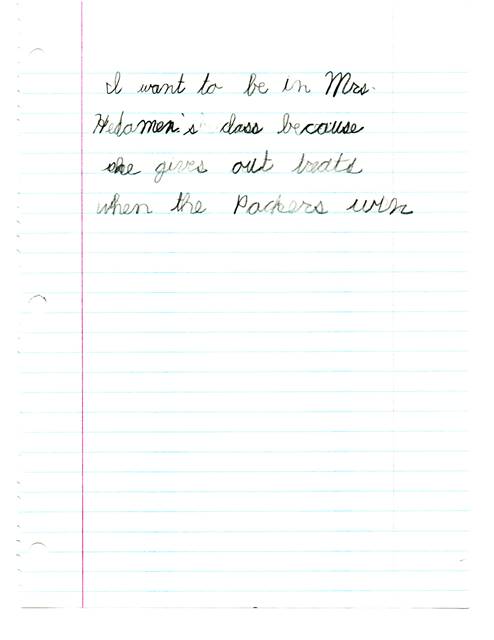 I want to be in Mrs.
Hedamen's class because
she gives out treats
when the Packers win